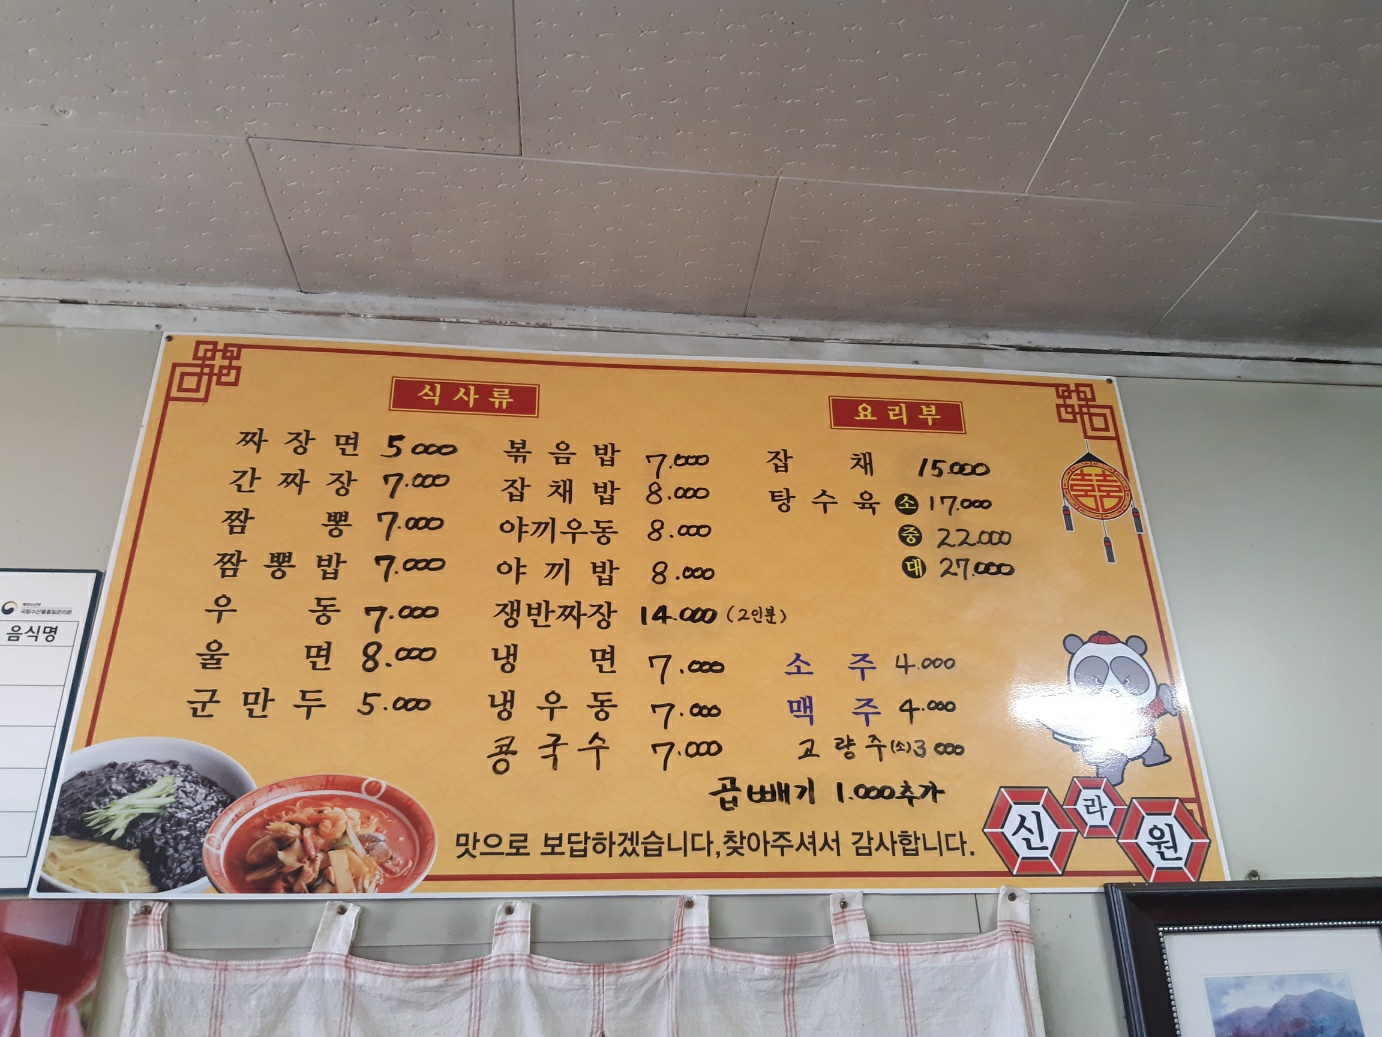 식사류
짜장면 5000
간짜장 7.000
짬뽕 7.000
짬뽕밥 7.000
우동 7.000
울면 8.000
군만두 5.000
볶음밥 7.000
잡채밥 8.000
야끼우동 8.000
야끼밥 8.000
쟁반짜장 14.000 (2인분)
냉면 7.000
냉우동 7.000
콩국수 7.000
요리부
잡채 15.000
탕수육 소 17.000
중 22.000
대 27.000
소주 4.000
맥주 4.000
고량주(소) 3000
곱빼기 1.000추가
맛으로 보답하겠습니다,찾아주셔서 감사합니다.
신라원
음식명